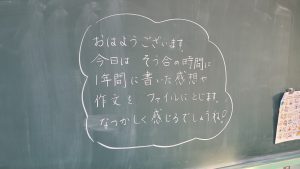 おはようございます
今日は そう合の時間に
1年間に書いた感想や
作文を ファイルにとじます。
なつかしく感じるでしょうね♡